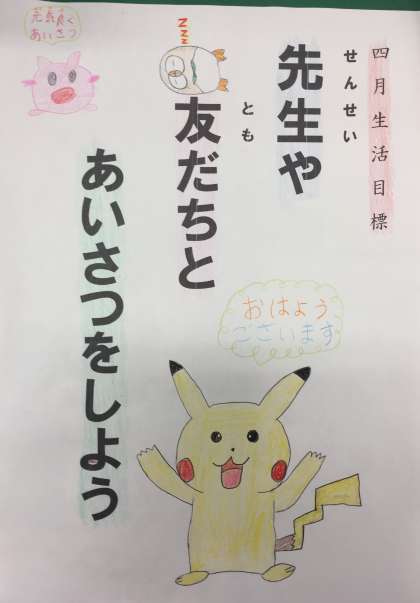 四月生活目標
せんせい
先生や
とも
友だちと
あいさつをしよう
元気良く
あいさつ
zzz
おはよう
ございます